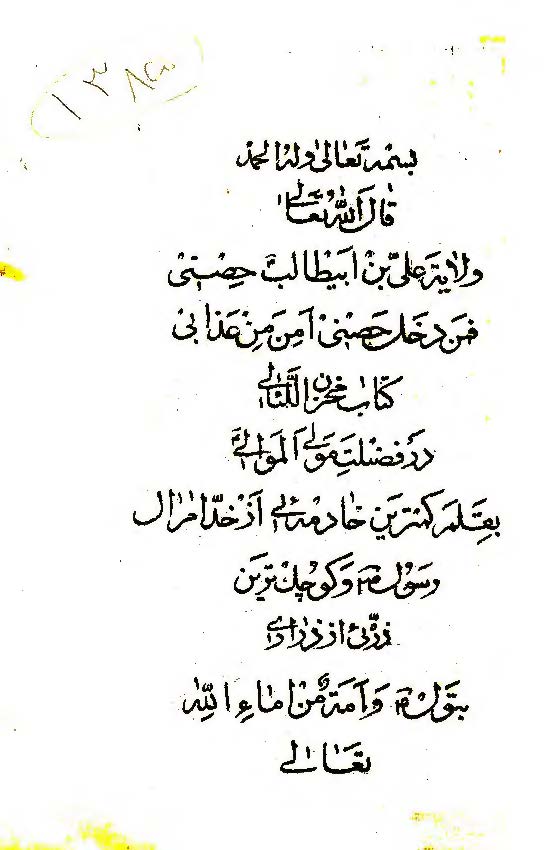 ۱۳۸
بسمه تعالی وله الحمد
قَالَ اللّٰهُ تَعَالٰی
ولایة علی بن ابیطالب حِصنی
فمَن دخل حصنی اَمِنَ مِن عذابی
کتاب مخزن اللئالی
در فضلتِ مولی الموالی
بقلم کمترین خادمهٔ از خدام ال
رسول ص وکوچک ترین
ذرّهٔ از ذراری
بتول ع وَامة من اماءِ اللّٰه
تعالی